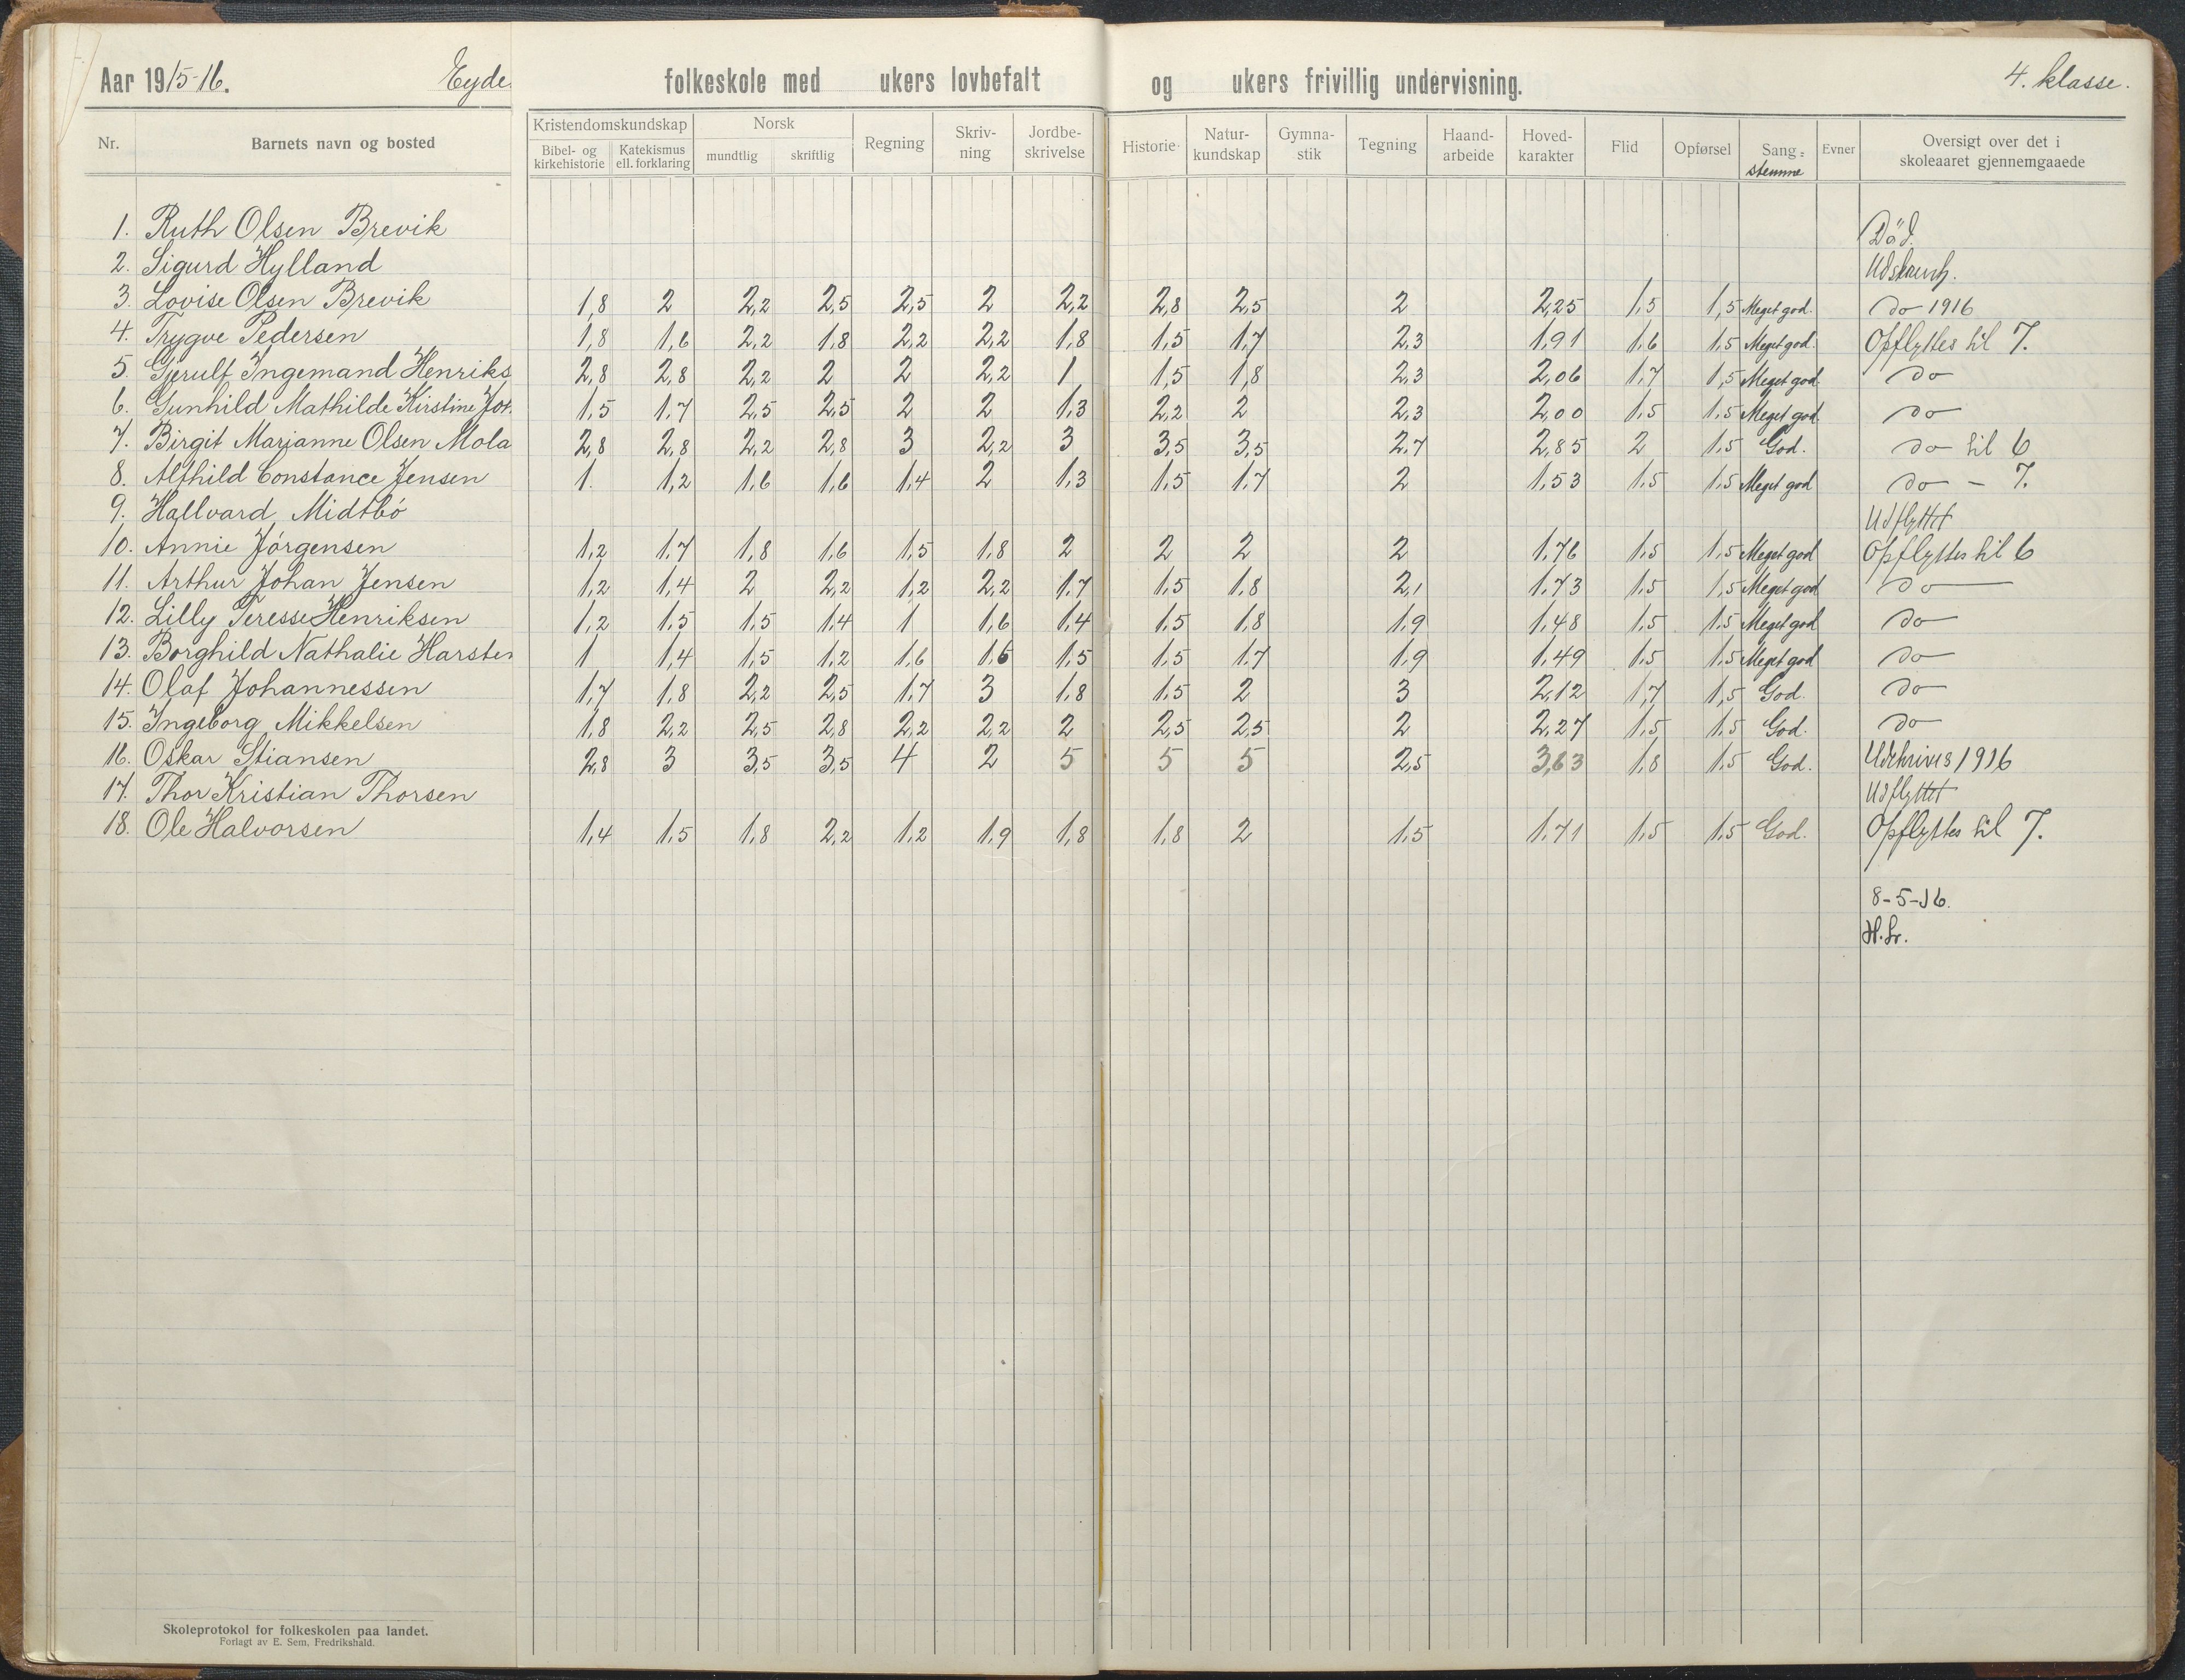 Aar 1915-16. Eyde folkeskole med ukers lovbefalt og ukers frivillig undervisning. 4. klasse.
Nr. Barnets navn og bosted Kristendomskundskap Bibel- og kirkehistorie Katekismus ell. forklaring Norsk mundtlig skriftlig Regning Skriv-ning Jordbe-skrivelse Historie Natur-kundskap Gymna-stik Tegning Haand-arbeide Hoved-karakter Flid Opførsel Sang=stemme Evner Oversigt over det i skoleaaret gjennemgaaede
1. Ruth Olsen Brevik Död.
2. Sigurd Hylland
3. Lovise Olsen Brevik 1,8 2 2,2 2,5 2,5 2 2,2 2,8 2,5 2 2,25 1,5 1,5 Meget god. do 1916
4. Trygve Pedersen 1,8 1,6 2,2 1,8 2,2 2,2 1,8 1,5 1,7 2,3 1,91 1,6 1,5 Meget god. Opflyttes til 7.
5. Gjerulf Ingemand Henriks 2,8 2,8 2,2 2 2 2,2 1 1,5 1,8 2,3 2,06 1,7 1,5 Meget god. do
6. Gunhild Mathilde Kirstine Jor 1,5 1,7 2,5 2,5 2 2 1,3 2,2 2 2,3 2,00 1,5 1,5 Meget god. do
7. Birgit Marianne Olsen Mola 2,8 2,8 2,2 2,8 3 2,2 3 3,5 3,5 2,7 2,85 2 1,5 God. do til 6
8. Alfhild Constance Jensen 1. 1,2 1,6 1,6 1,4 2 1,3 1,5 1,7 2 1,53 1,5 1,5 Meget god do - 7.
9. Hallvard Midtbö Udflyttet
10. Annie Jörgensen 1,2 1,7 1,8 1,6 1,5 1,8 2 2 2 2 1,76 1,5 1,5 Meget god Opflyttes til 6
11. Arthur Johan Jensen 1,2 1,4 2 2,2 1,2 2,2 1,7 1,5 1,8 2,1 1,73 1,5 1,5 Meget god do
12. Lilly Teresse Henriksen 1,2 1,5 1,5 1,4 1 1,6 1,4 1,5 1,8 1,9 1,48 1,5 1,5 Meget god do
13. Borghild Nathalie Harsten 1 1,4 1,5 1,2 1,6 1,6 1,5 1,5 1,7 1,9 1,49 1,5 1,5 Meget god do
14. Olaf Johannessen 1,7 1,8 2,2 2,5 1,7 3 1,8 1,5 2 3 2,12 1,7 1,5 God. do
15. Ingeborg Mikkelsen 1,8 2,2 2,5 2,8 2,2 2,2 2 2,5 2,5 2 2,27 1,5 1,5 God. do
16. Oskar Stiansen 2,8 3 3,5 3,5 4 2 5 5 5 2,5 3,63 1,8 1,5 God. 1916
17. Thor Kristian Thorsen Udflyttet
18. Ole Halvorsen 1,4 1,5 1,8 2,2 1,2 1,9 1,8 1,8 2 1,5 1,71 1,5 1,5 God. Opflyttes til 7.
8-5-16.
Skoleprotokol for folkeskolen paa landet.
Forlagt av E. Sem, Fredrikshald.